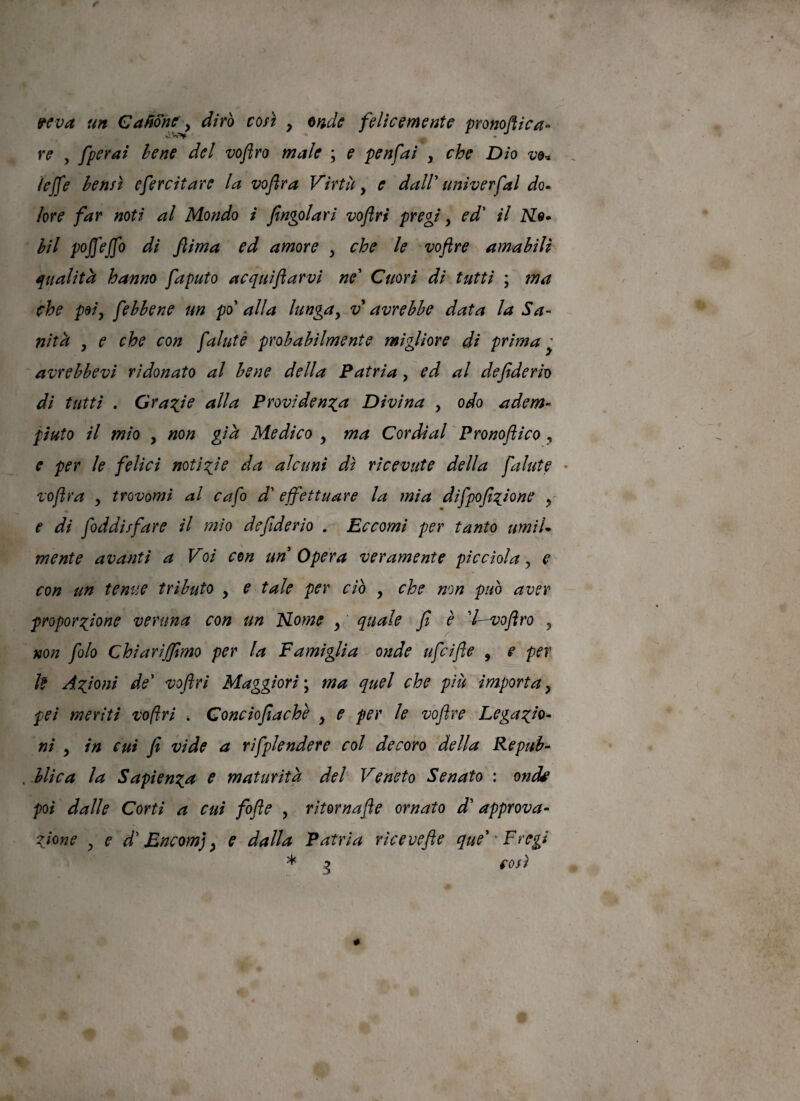 reva un Canone, dirò così , onde felicemente pronoſtica-
re , ſperai bene del voſtro male ; e penſai , che Dio vo-
leſſe bensì eſercitare la voſtra Virtù , e dall' univerſal do-
lore far noti al Mondo i ſingolari voſtri pregi , ed' il No-
bil poſſeſſo di ſtima ed amore , che le voſtre amabili
qualità hanno ſaputo acquiſtarvi ne' Cuori di tutti ; ma
che poi, ſebbene un po' alla lunga, v' avrebbe data la Sa-
nità , e che con ſalute probabilmente migliore di prima ;
avrebbevi ridonato al bene della Patria , ed al deſiderio
di tutti . Grazie alla Providenza Divina , odo adem-
piuto il mio , non già Medico , ma Cordial Pronoſtico ,
e per le felici notizie da alcuni dì ricevute della ſalute
voſtra , trovomi al caſo d' effettuare la mia diſpoſizione ,
e di ſoddisfare il mio deſiderio . Eccomi per tanto umil-
mente avanti a Voi con un' Opera veramente picciola , e
con un tenue tributo , e tale per ciò , che non può aver
proporzione veruna con un Nome , quale ſi è 'l voſtro ,
non ſolo Chiariſſimo per la Famiglia onde uſciſte , e per
le Azioni de' voſtri Maggiori ; ma quel che più importa,
pei meriti voſtri . Concioſiachè , e per le voſtre Legazio-
ni , in cui ſi vide a riſplendere col decoro della Repub-
blica la Sapienza e maturità del Veneto Senato : onde
poi dalle Corti a cui foſte , ritornaſte ornato d' approva-
zione , e d' Encomj, e dalla Patria riceveſte que' Fregi
* 3 così